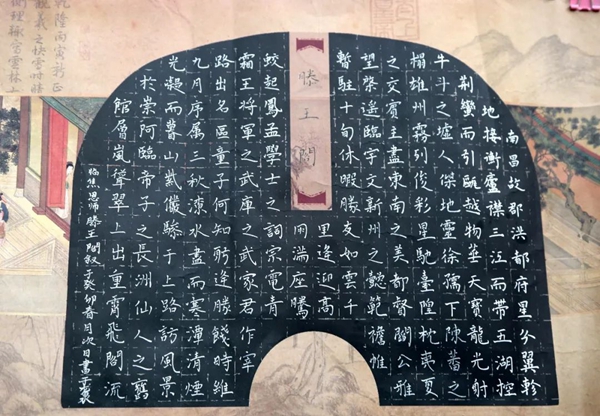 南昌故郡洪都府星分翼軫
地接衡廬襟三江而帶五湖控
荆蠻而引甌越物華天寶龍光射
牛斗之墟人傑地靈徐孺下陳蕃之
榻雄州霧列俊彩星馳臺隍枕夷夏
之交賓主盡東南之美都督閻公雅
望棨遥臨宇文新州之懿範襜帷
暫駐十旬休暇勝友如雲千
里逢迎高
滕王閣
朋满座騰
蛟起鳳孟學士之詞宗電青
霜王將軍之武庫之武家君作宰
路出名區童子何知躬逢勝餞時維
九月序属三秋潦水盡而寒潭清煙
光凝而暮山紫儼驂于上路訪風景
於崇阿臨帝子之長洲仙人之舊
館層嵐聳翠上出重霄飛閣流
滕王閣叙癸卯春月次日書
乾隆丙寅新正